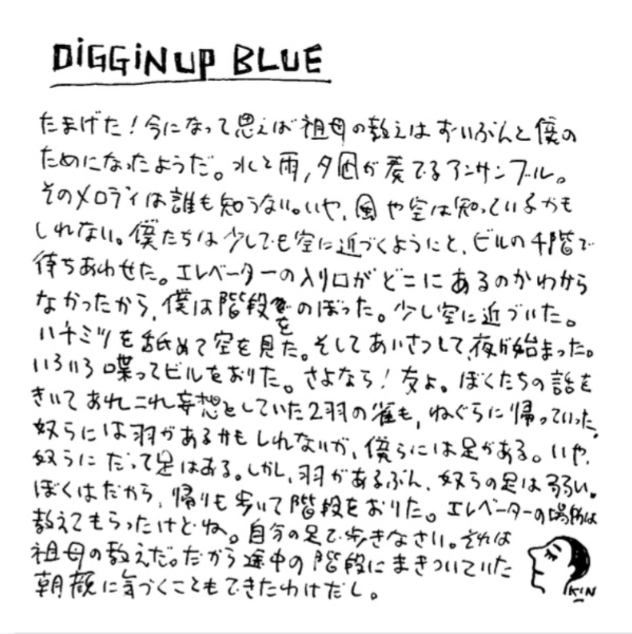 DiGGiNUP BLUE
たまげた！今になって思えば祖母の教えはずいぶんと僕の
ためになったようだ。水と雨,夕凪が奏でるアンサンブル。
そのメロディは誰も知らない。いや、風や空は知っているかも
しれない。僕たちは少しでも空に近づくようにと、ビルの4階で
待ちあわせた。エレベーターの入り口がどこにあるのかわから
なかったから、僕は階段をのぼった。少し空に近づいた。
ハチミツを舐めて空を見た。そしてあいさつして、夜が始まった。
いろいろ喋ってビルをおりた。さよなら！友よ。ぼくたちの話を
きいてあれこれ妄想としていた2羽の雀も、ねぐらに帰っていった。
奴らには羽があるかもしれないが、僕らには足がある。いや、
奴らにだって足はある。しかし、羽があるぶん、奴らの足は弱い。
ぼくはだから、帰りも歩いて階段をおりた。エレベーターの場所は
教えてもらったけどね。自分の足で歩きなさい。それは
祖母の教えだ。だから途中の階段にまきついていた
朝顔に気づくこともできたわけだし。
KIN